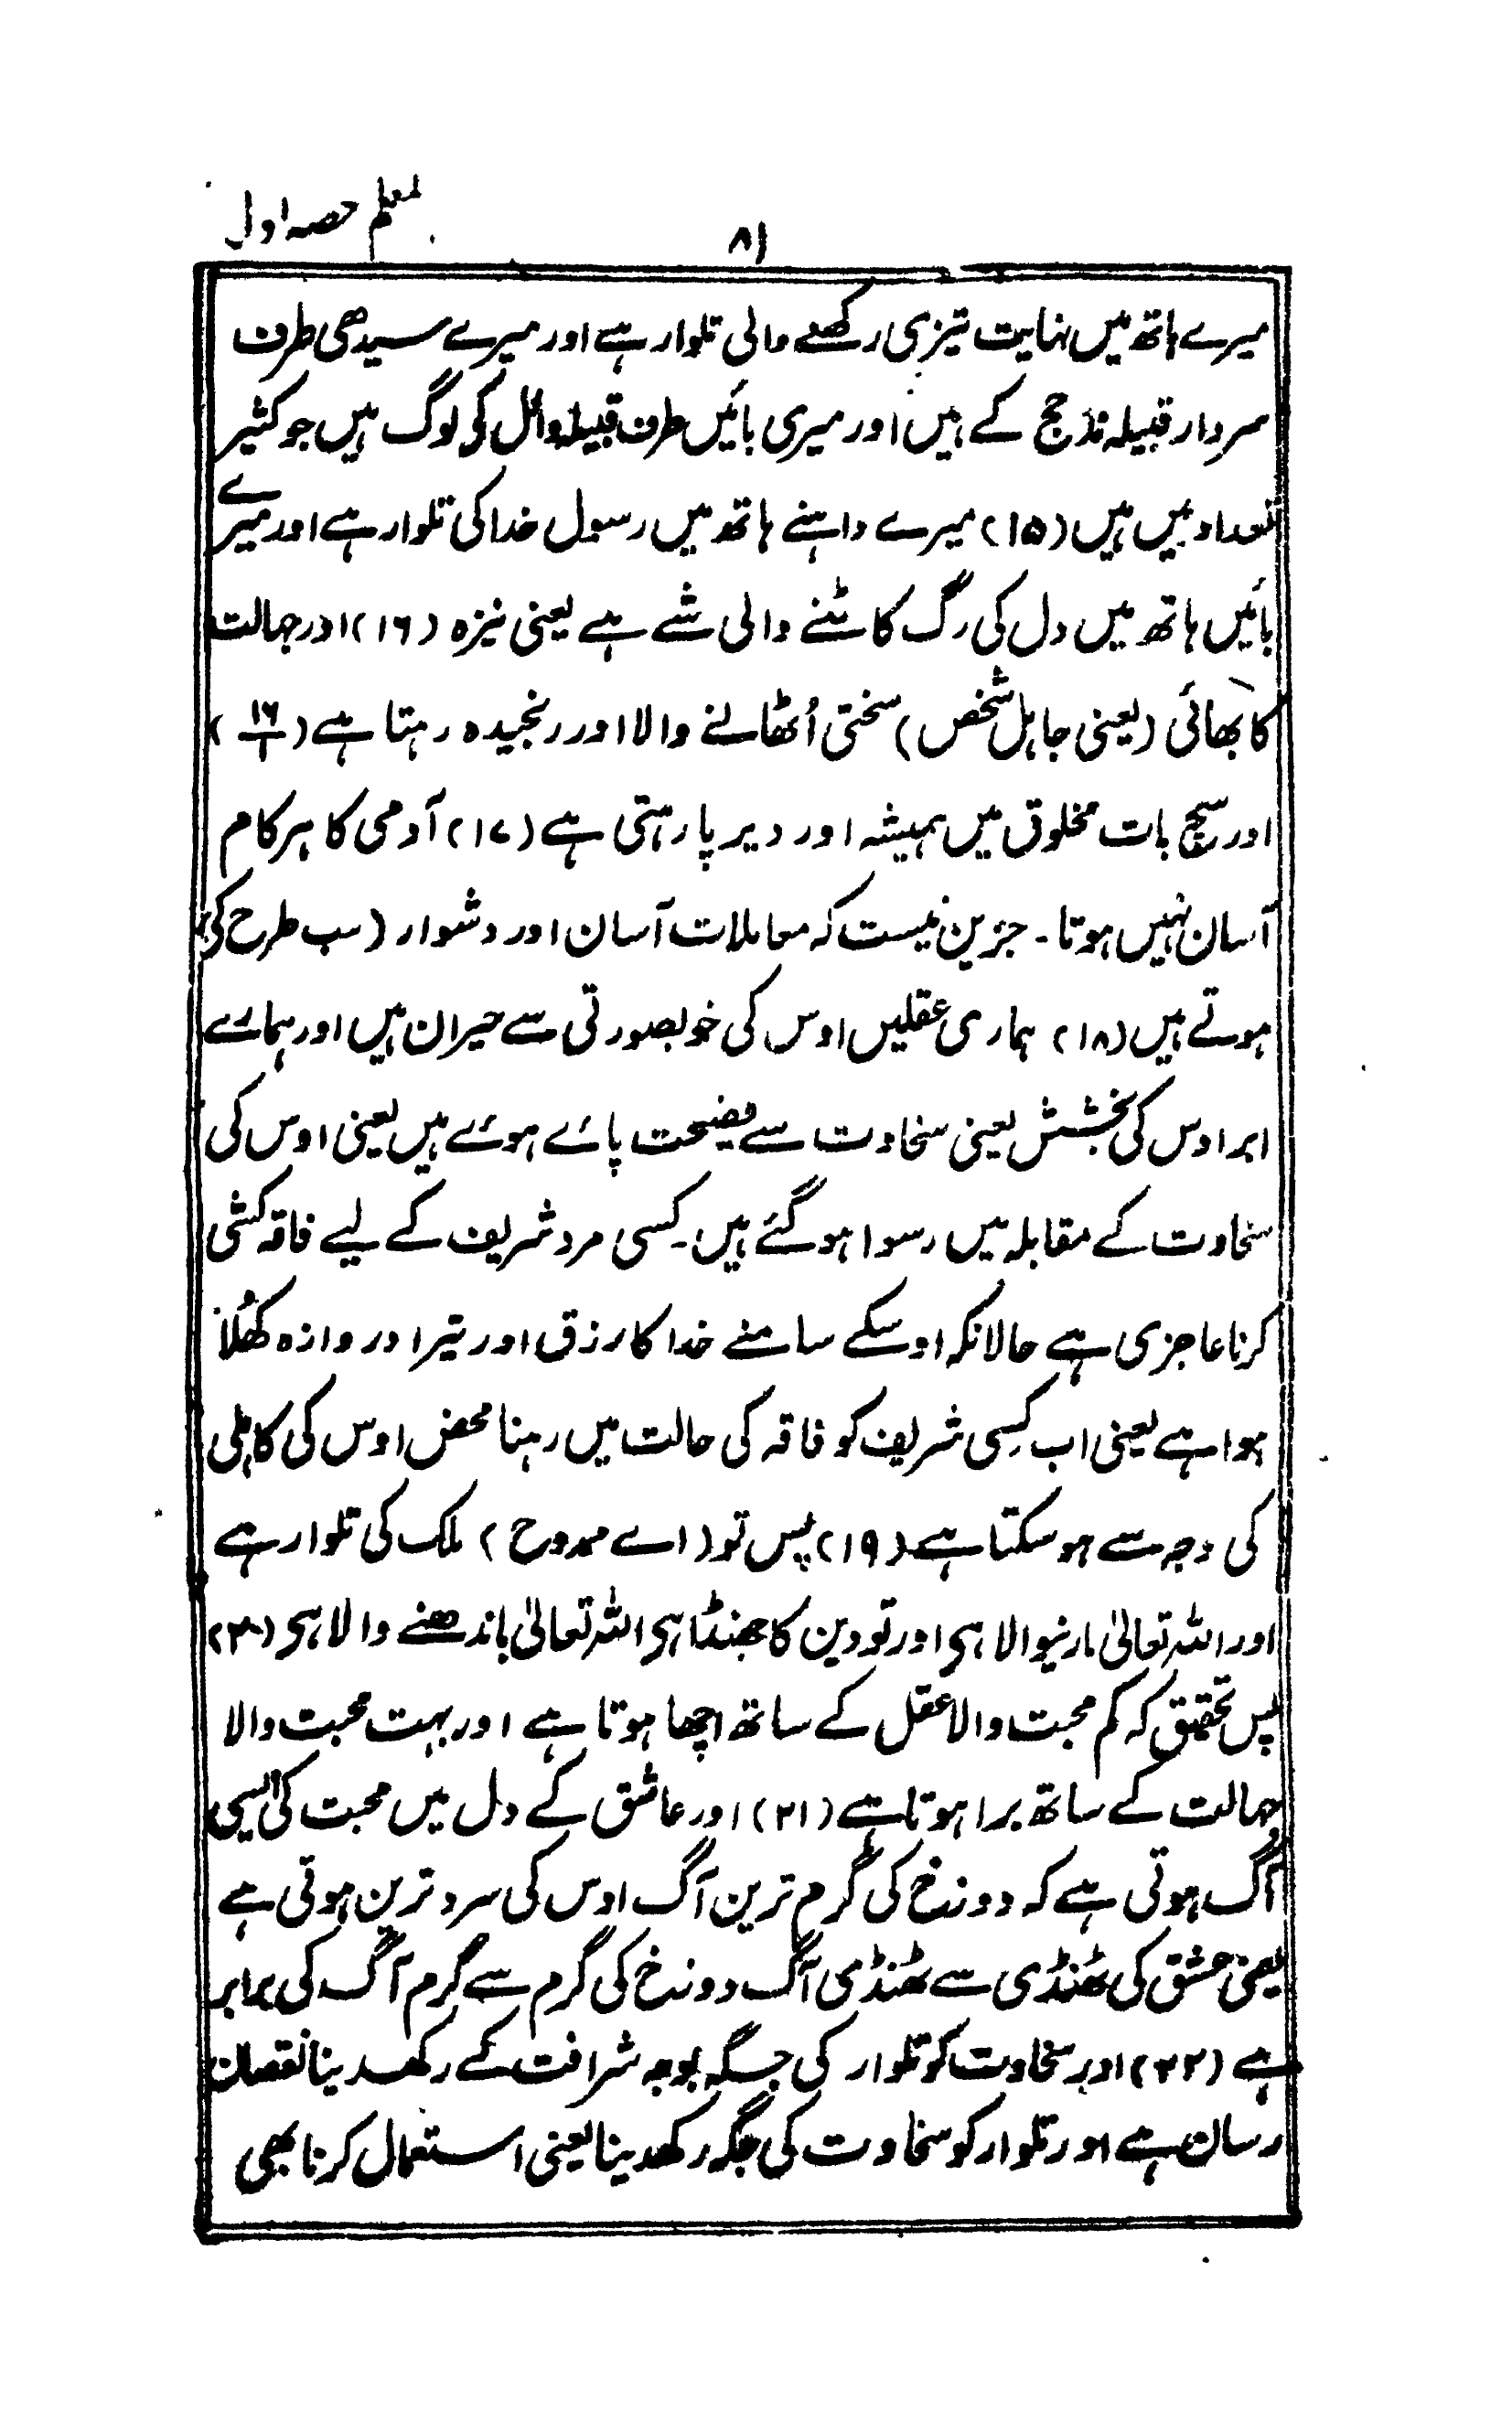 ۸۱
معلم حصہ اول
میرے ہاتھ میں نہایت تیزی رکھنے والی تلوار ہے اور میرے سیدھی طرف
سردار قبیلہ مذحج کے ہیں اور میری بائیں طرف قبیلہ وائل کی لوگ ہیں جو کثیر
تعداد میں ہیں (۱۵) میرے داہنے ہاتھ میں رسول خدا کی تلوار ہے اور میرے
بائیں ہاتھ میں دل کی رگ کاٹنے والی شے ہے یعنی نیزہ (۱۶) اور جہالت
کا بھائی (یعنی جاہل شخص) سختی اُٹھانے والا اور رنجیدہ رہتا ہے (۱۶/۱)
اور سچ بات مخلوق میں ہمیشہ اور دیر پا رہتی ہے (۱۷) آدمی کا ہر کام
آسان نہیں ہوتا ۔ جزین نیست کہ معاملات آسان اور دشوار (سب طرح کی)
ہوتے ہیں (۱۸) ہماری عقلیں اوس کی خوبصورتی سے حیران ہیں اور ہمارے
ابر اوس کی بخشش یعنی سخاوت سے فضیحت پائے ہوئے ہیں یعنی اوس کی
سخاوت کے مقابلہ میں رسوا ہوگئے ہیں۔ کسی مرد شریف کے لیے فاقہ کشی
کرنا عاجزی ہے حالانکہ اوسکے سامنے خدا کا رزق اور تیرا دروازہ کھُلا
ہوا ہے یعنی اب کِسی شریف کو فاقہ کی حالت میں رہنا محض اوس کی کاہلی
کی وجہ سے ہوسکتا ہے (۱۹) پس تو (اے ممدوح) ملک کی تلوار ہے
اور اللہ تعالیٰ مارنیوالا ہی اور تو دین کا جھنڈا ہی اللہ تعالیٰ باندھنے والا ہی (۲۰)
پس تحقیق کہ کم محبت والا عقل کے ساتھ اچھا ہوتا ہے اور بہت محبت والا
جہالت کے ساتھ برا ہوتا ہے (۲۱) اور عاشق کے دل میں محبت کی ایسی
آگ ہوتی ہے کہ دوزخ کی گرم ترین آگ اوس کی سرد ترین ہوتی ہے
یعنی عشق کی ٹھنڈی سے ٹھنڈی آگ دوزخ کی گرم سے گرم آگ کی برابر
ہے (۲۲) اور سخاوت کو تلوار کی جگہ بوجہ شرافت کے رکھدینا نقصان
رسان ہے اور تلوار کو سخاوت کی جگہ رکھدینا یعنی استعمال کرنا بھی